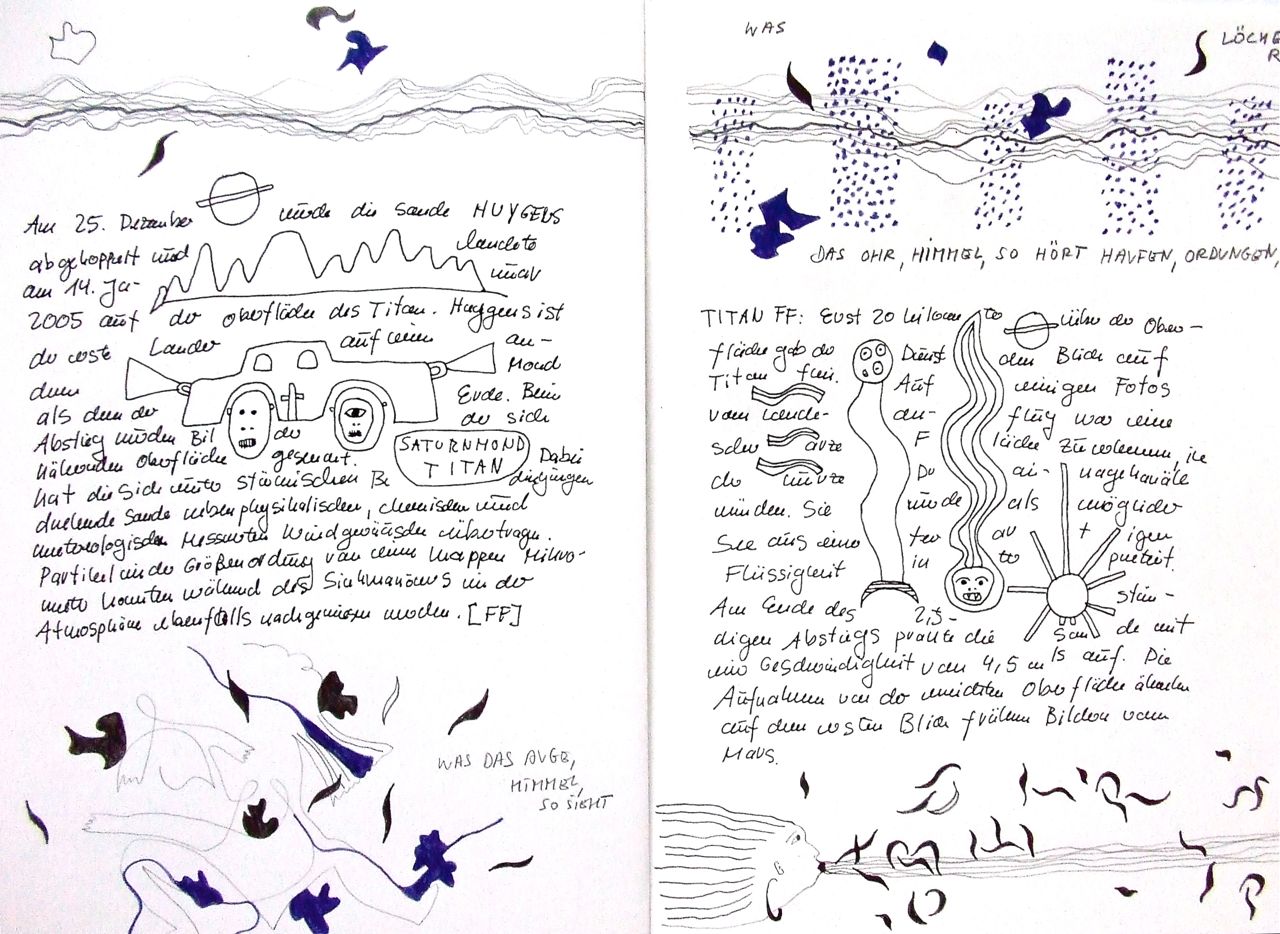 Am 25. Dezember wurde die Sonde HUYGENS
abgekoppelt und landete
am 14. Ja- nuar
2005 auf der Oberfläche des Titan. Huygens ist
der erste Lander auf einem an-
dern Mond
als dem der Erde. Beim
Abstieg wurden Bil der der sich
nähernden Oberfläche gesendet.
SATURNMOND
TITAN
hat die sich unter stürmischen Be dingungen Dabei
drehende Sonde neben physikalischen, chemischen und
meteorologischen Messwerten Windgeräusche übertragen.
Partikel in der Größenordnung von einem knappen Mikro-
meter konnten während des Sinkmanövers in der
Atmosphäre ebenfalls nachgewiesen werden. [FF]
WAS DAS AUGE,
HIMMEL,
SO SIEHT
WAS
LÖCHE
R
DAS OHR, HIMMEL, SO HÖRT HAUFEN, ORDUNGEN,
TITAN FF: Erst 20 Kilome ter über der Ober-
fläche gab der Dunst den Blick auf
Titan frei. Auf einigen Fotos
vom Lande- an- flug war eine
F läche zu erkennen, in
die
münden. Sie wurde als möglicher
See aus einer
Flüssigkeit in
Am Ende des 2,5- stün-
digen Abstiegs prallte die Son de mit
einer Geschwindigkeit von 4,5 m/s auf. Die
Aufnahmen von der vereisten Oberfläche ähneln
auf den ersten Blick frühen Bildern vom
Mars.